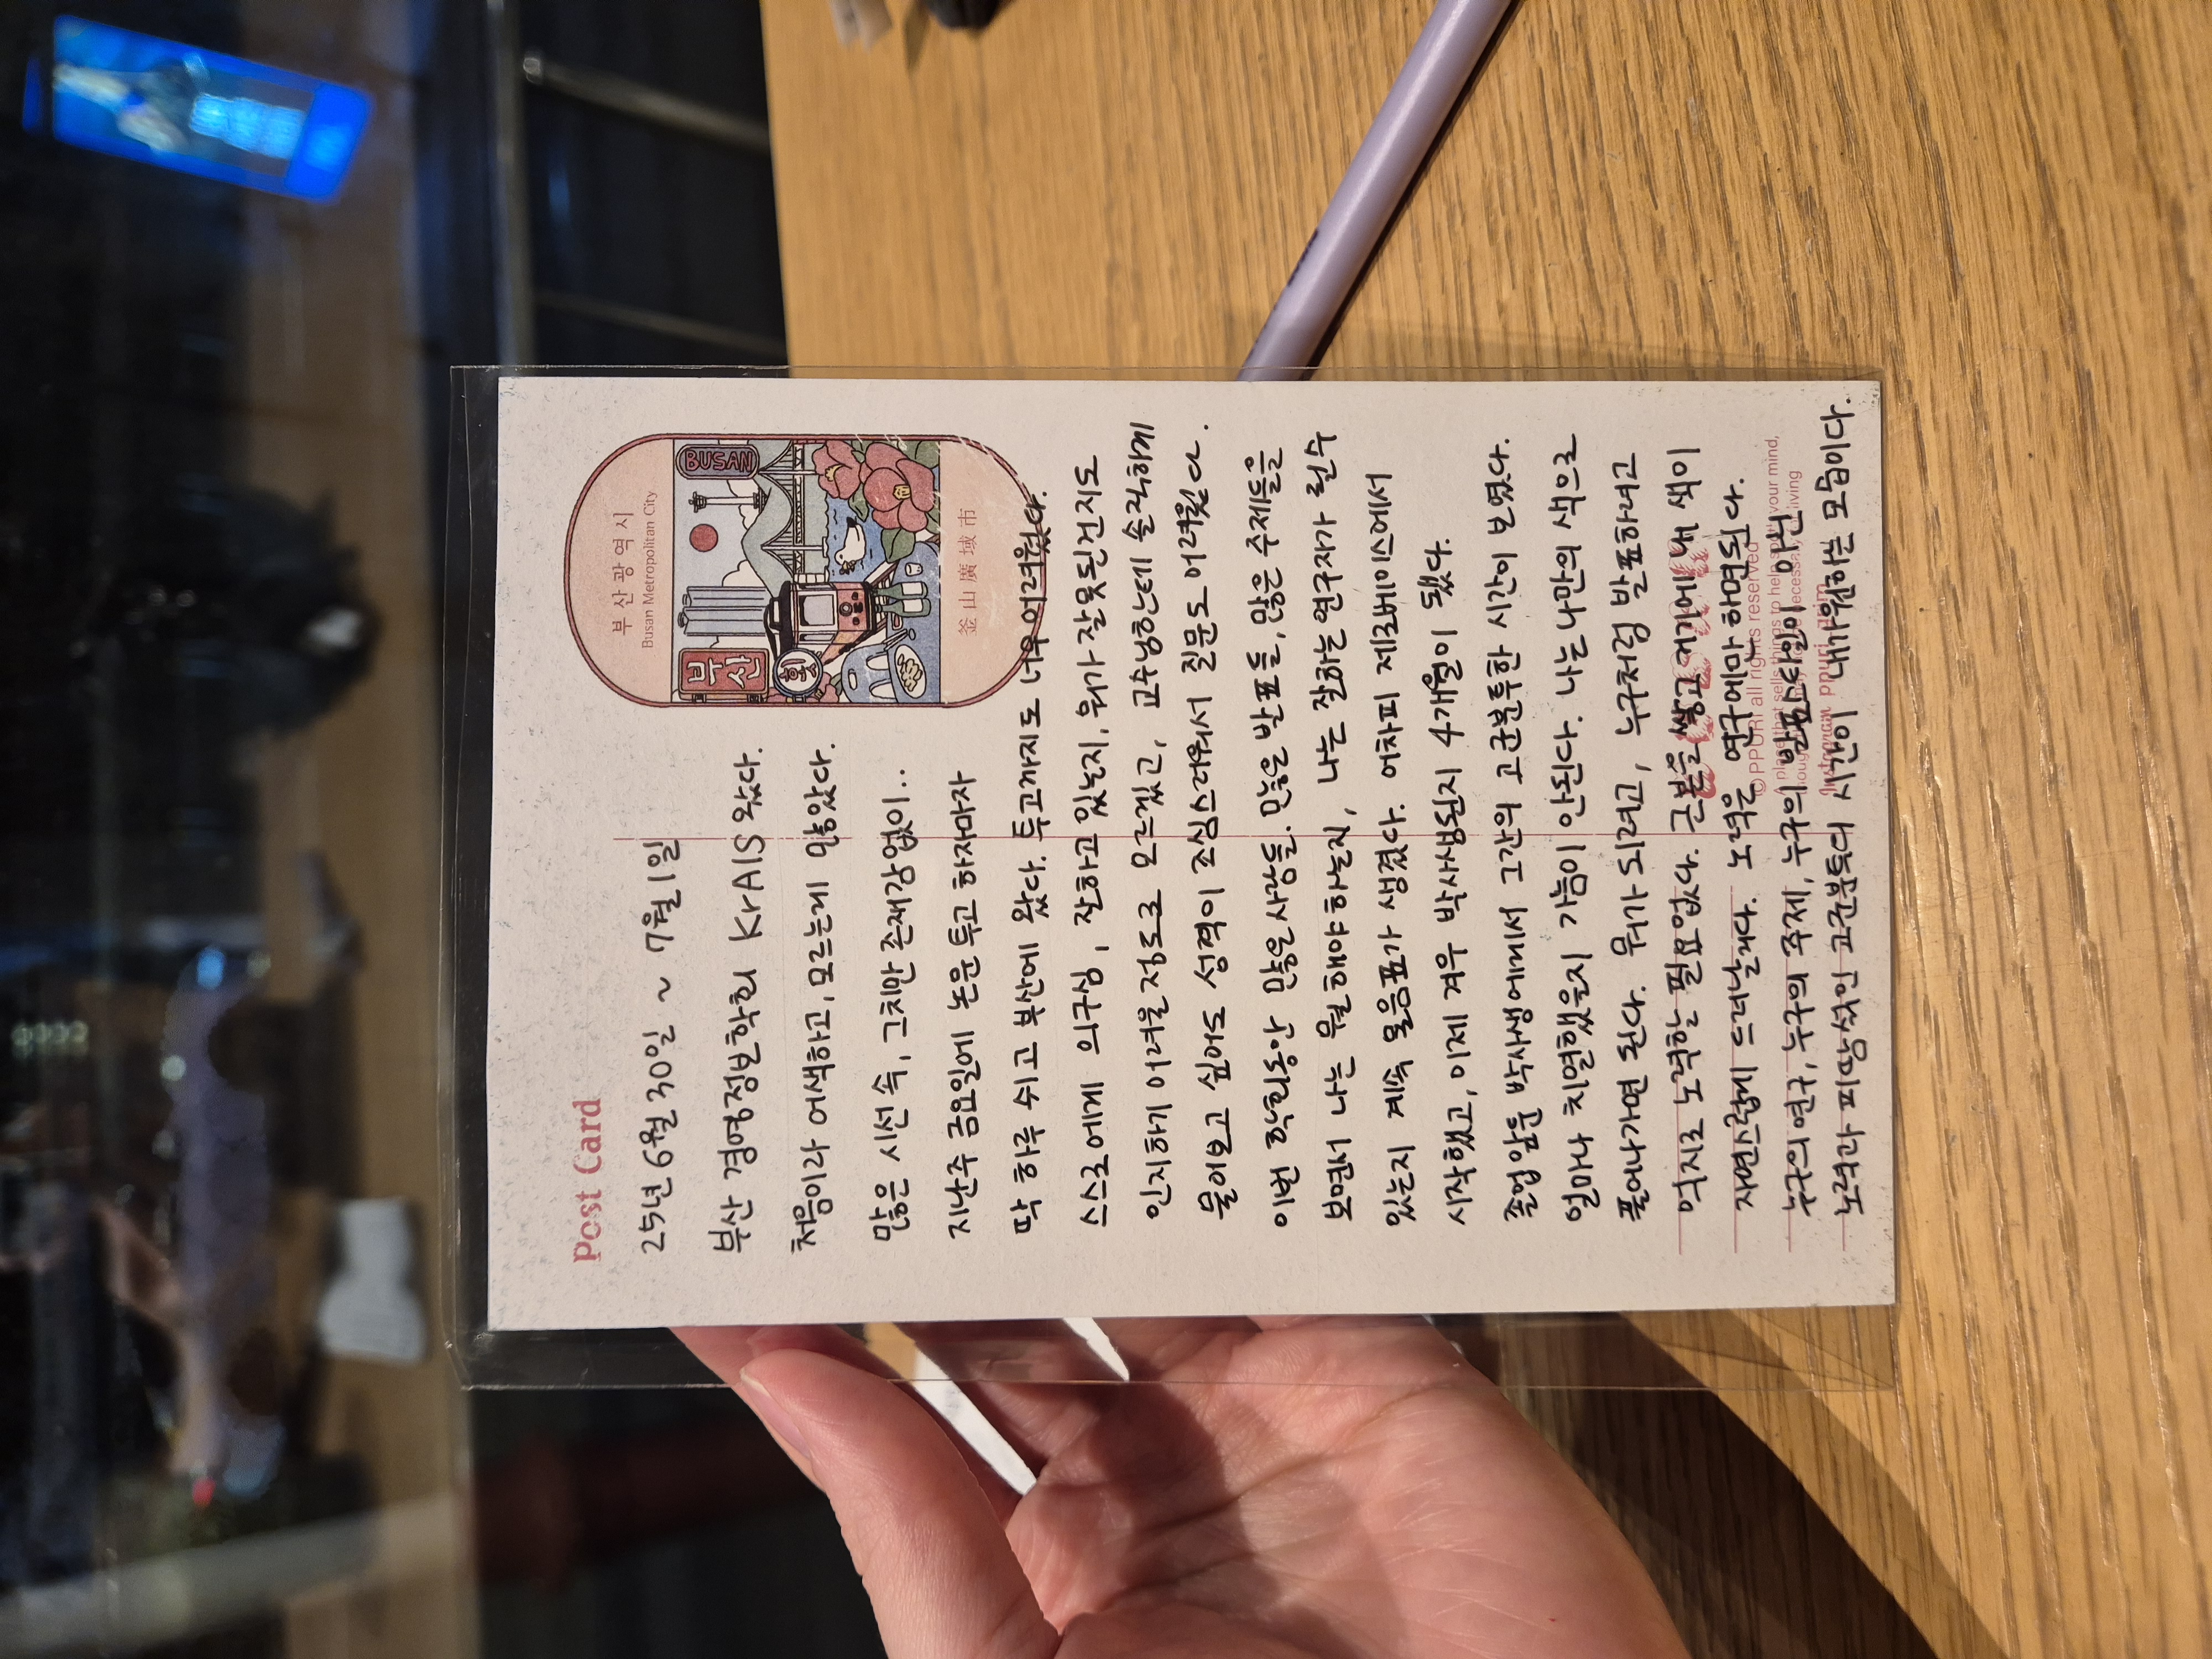 Post Card
부산광역시
Busan Metropolitan City
부산
BUSAN
釜山廣域市
25년 6월 30일 ~ 7월 1일
부산 경영정보학회 KrAIS 왔다.
처음이라 어색하고, 모르는게 많았다.
많은 시선 속, 그치만 존재감 없이..
지난주 금요일에 논문 투고 하자마자
딱 하루 쉬고 부산에 왔다. 투고까지도 너무 어려웠다.
스스로에게 의구심, 잘하고 있는지, 뭐가 잘못된건지도
인지하기 어려울 정도로 모르겠고, 교수님한테 솔직하게
물어보고 싶어도 성격이 조심스러워서 질문도 어려웠다.
이번 학회동안 많은 사람들. 많은 발표들, 많은 주제들을
보면서 나는 뭘 해야 하는지, 나는 잘하는 연구자가 될 수
있는지 계속 물음표가 생겼다. 어차피 제로베이스에서
시작했고, 이제 겨우 박사생된지 4개월이 됐다.
졸업 앞둔 박사생에게서 그간의 고군분투한 시간이 보였다.
얼마나 치열했을지 가늠이 안된다. 나는 나만의 색으로
풀어나가면 된다. 뭐가 되려고, 누구처럼 발표하려고
억지로 노력할 필요없다. 근본을 쌓고 거기에 내 색이
자연스럽게 드러날거다. 노력은 연구에만 하면된다.
누구의 연구, 누구의 주제, 누구의 발표스타일이 아닌
노력과 피땀섞인 고군분투의 시간이 내가 원하는 모습이다.
©PPURI all rights reserved
Instagram ppuri